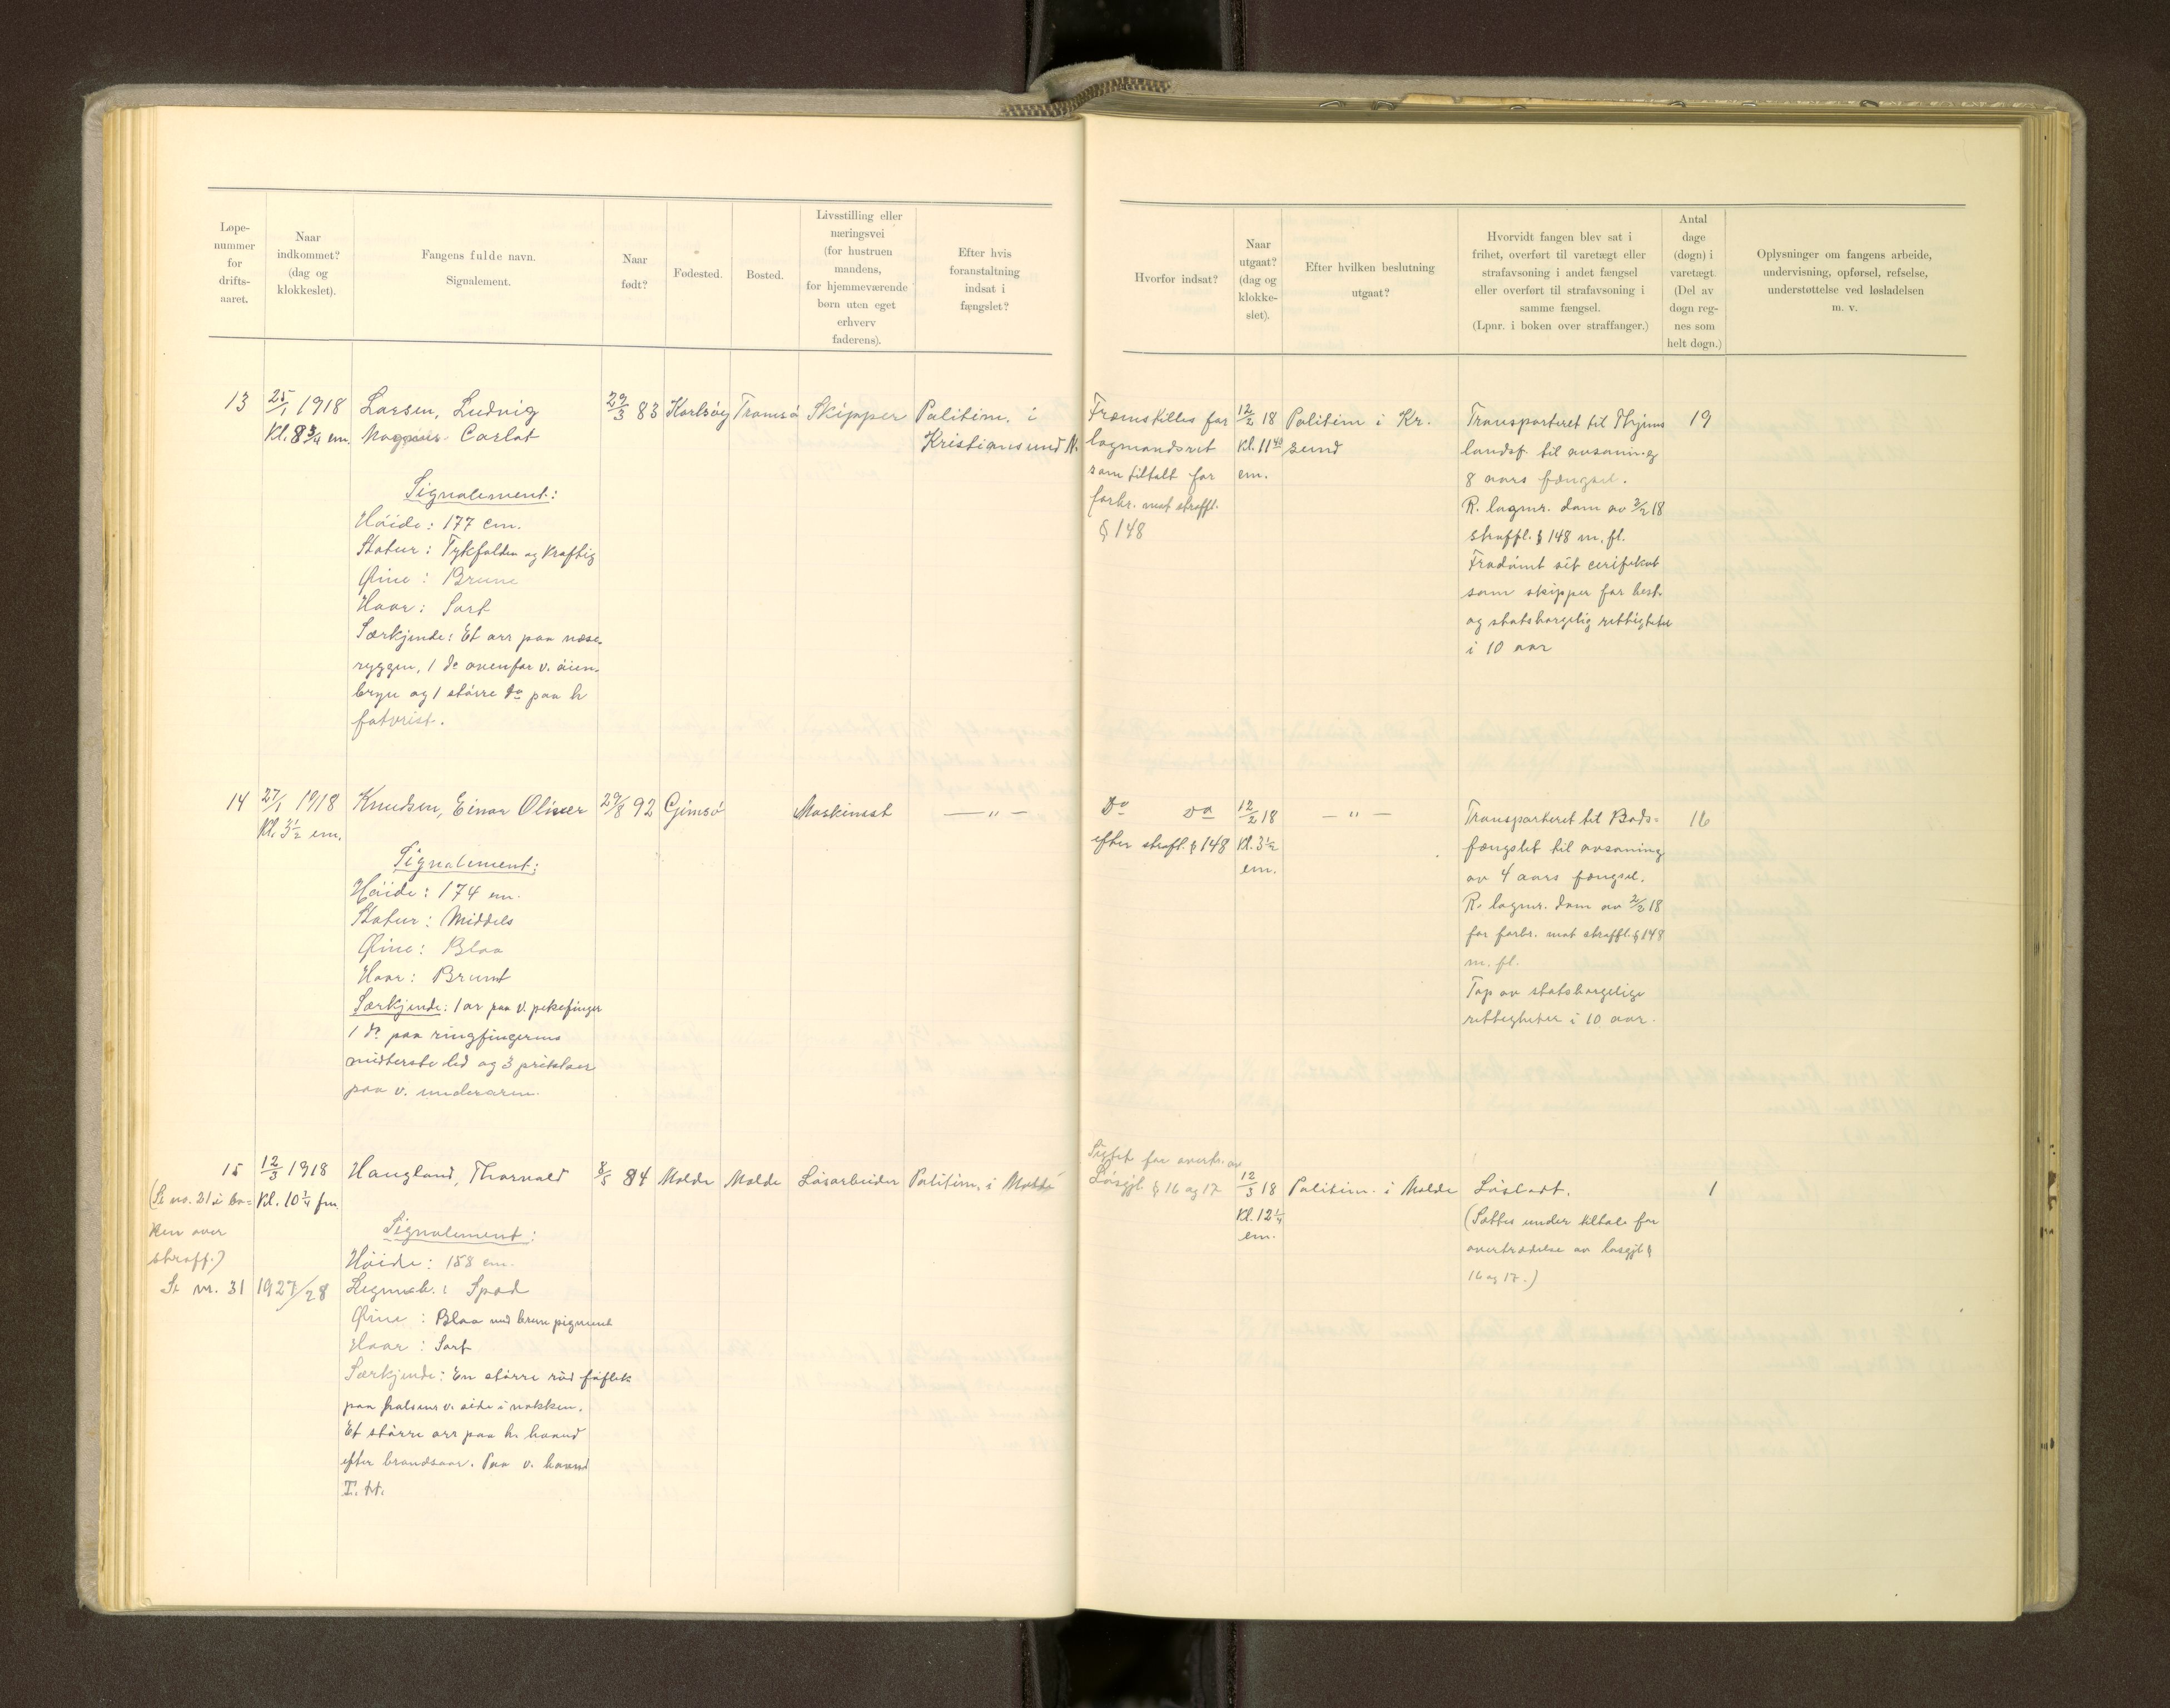 Løpe-
nummer
for
drifts-
aaret.
Naar
indkommet?
(dag og
klokkeslet).
Fangens fulde navn.
Signalement.
Naar
født?
Fødested.
Bosted.
Livsstilling eller
næringsvei
(for hustruen
mandens,
for hjemmeværende
børn uten eget
erhverv
faderens).
Efter hvis
foranstaltning
indsat i
fængslet?
Hvorfor indsat?
Naar
utgaat?
(dag og
klokke-
slet).
Efter hvilken beslutning
utgaat?
Hvorvidt fangen blev sat i
frihet, overført til varetægt eller
strafavsoning i andet fængsel
eller overført til strafavsoning i
samme fængsel.
(Lpnr. i boken over straffanger.)
Antal
dage
(døgn) i
varetægt.
(Del av
døgn reg-
nes som
helt døgn.)
Oplysninger om fangens arbeide,
undervisning, opførsel, refselse,
understøttelse ved løsladelsen
m. v.
13
25/1 1918
Kl. 8 3/4 em.
Larsen, Ludvig
Carlot
Signalement:
Höide: 177 cm.
Statur: Tykfalden og kraftig
Øine: Brune
Haar: Sort
Særkjende: Et arr paa næse-
ryggen, 1 do ovenfor v. öien-
bryn og 1 större do paa h
fotvrist.
29/3 83
Karlsöy
Tromsö
Skipper
Politim. i
Kristiansund N.
Fremstilles for
lagmandsret
som tiltalt for
forbr. mot straffl.
§ 148
12/2 18
Kl. 11 40
em.
Politim i Kr.
sund
Transporteret til Thjems
landsf. til avsoning
8 aars fængsel.
R. lagmr. dom av 2/2 18
straffl. § 148 m. fl.
Fradömt sit cerifikat
som skipper for best.
og statsborgelig rettigheter
i 10 aar
19
14
27/1 1918
Kl. 3 1/2 em.
Knudsen, Einar Oliver
Signalement:
Höide: 174 em.
Statur: Middels
Øine: Blaa
Haar: Brunt
Særkjende: 1 ar paa v. pekefinger
1 do paa ringfingerens
midterste led og 3 prikker
paa v. underarm.
29/8 92
Gjimsö
Maskinist
— " —
Do do
efter straffl. § 148
12/2 18
Kl. 3 1/2
em.
— " —
Transporteret til Bods-
fængslet til avsoning
av 4 aars fængsel.
R. lagmr. dom av 2/2 18
for forbr. mot straffl. § 148
m. fl.
Tap av statsborgelige
rettigheter i 10 aar.
16
15
(Se nr. 21 i bo-
ken over
straff.)
Se nr. 31 1927/28
12/3 1918
Kl. 10 1/4 fm.
Haugland, Thorvald
Signalement:
Höide: 158 em.
Legemsb.: Spæd
Øine: Blaa med brun pigment
Haar: Sort
Særkjende: En större röd föflek
paa halsens v. side i nakken.
Et större arr paa h. haand
efter brandsaar. Paa v. haand
T. H.
8/5 84
Molde
Molde
Lösarbeider
Politim. i Molde
Sigtet for overtr. av
Lösgjl. § 16 og 17
12/3 18
Kl. 12 1/4
em.
Politim. i Molde
Lösladt.
(Sættes under tiltale for
overtrædelse av lösgjl §
16 og 17.)
1